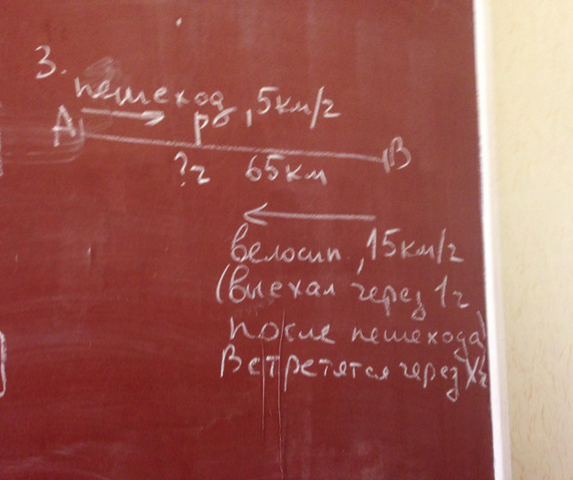 3.
пешеход, 5км/г
A B
?г 65км
велосип., 15км/г
(выехал через 1г
после пешехода)
Встретятся через Xг